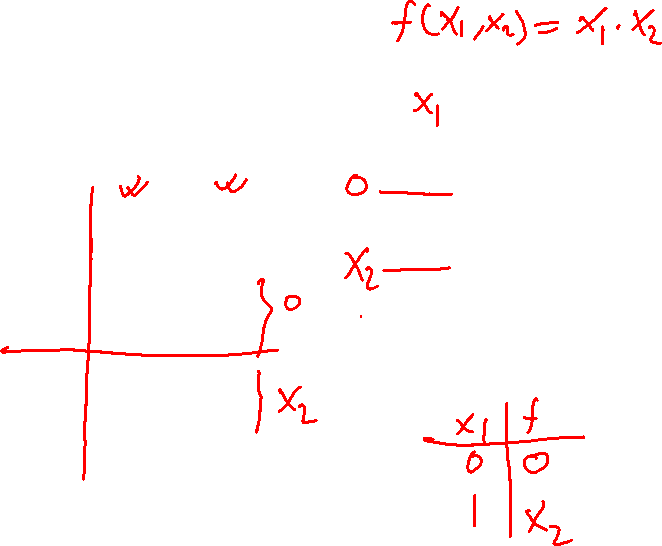 f(x₁,x₂) = x₁·x₂
x₁
0
x₂
0
x₂
x₁ f
0 0
1 x₂